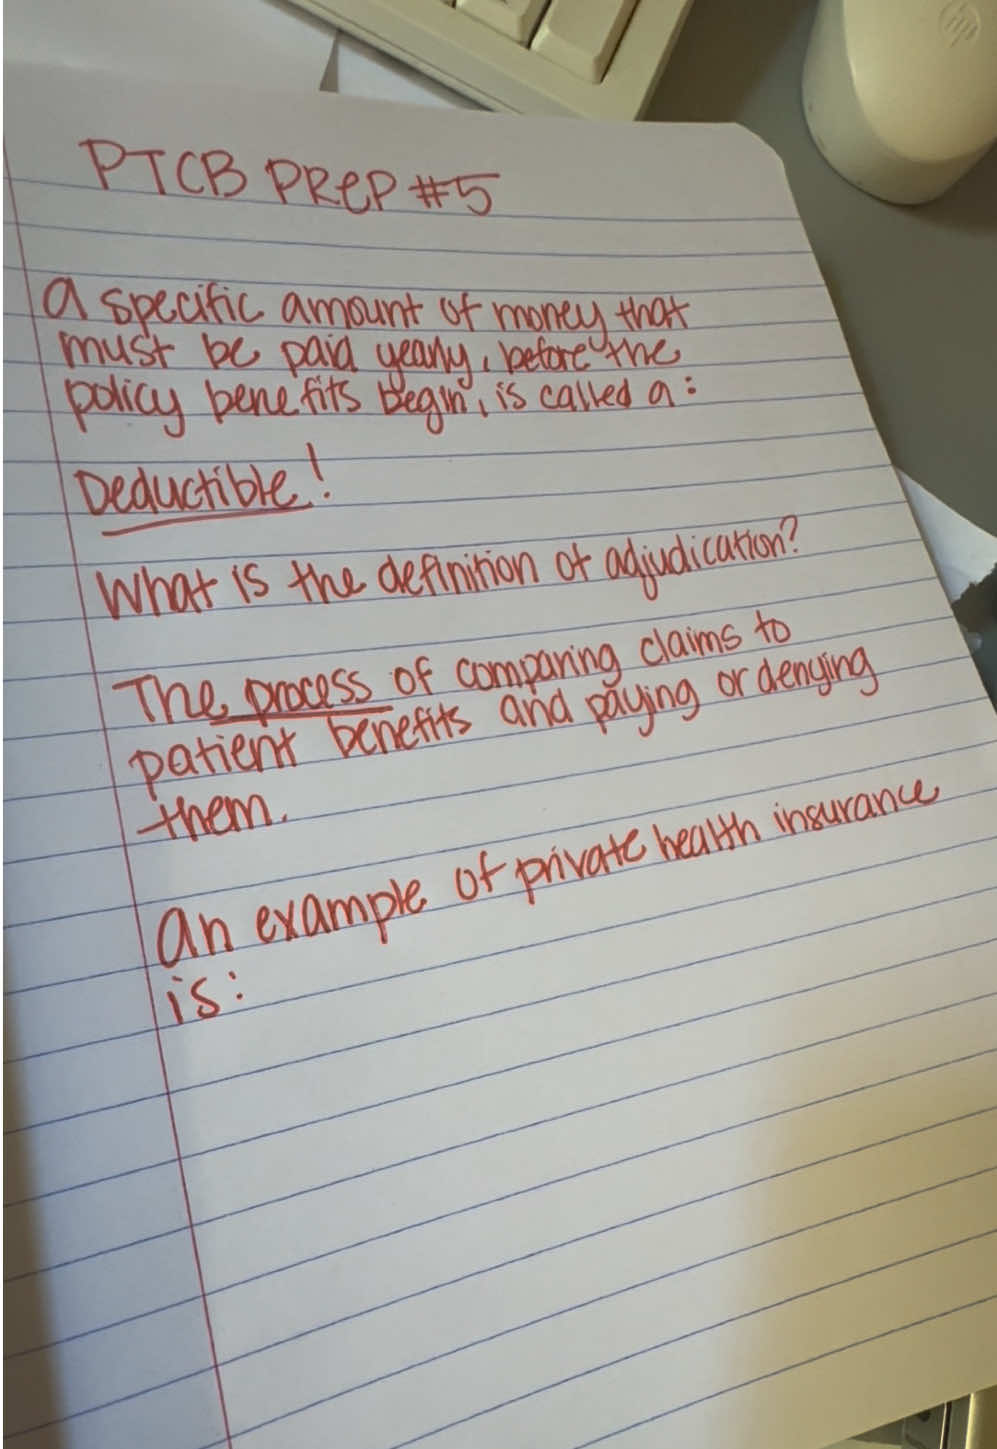 PTCB PREP #5
a specific amount of money that
must be paid yearly, before the
policy benefits begin, is called a:
Deductible!
What is the definition of adjudication?
The process of comparing claims to
patient benefits and paying or denying
them.
an example of private health insurance
is:
hp